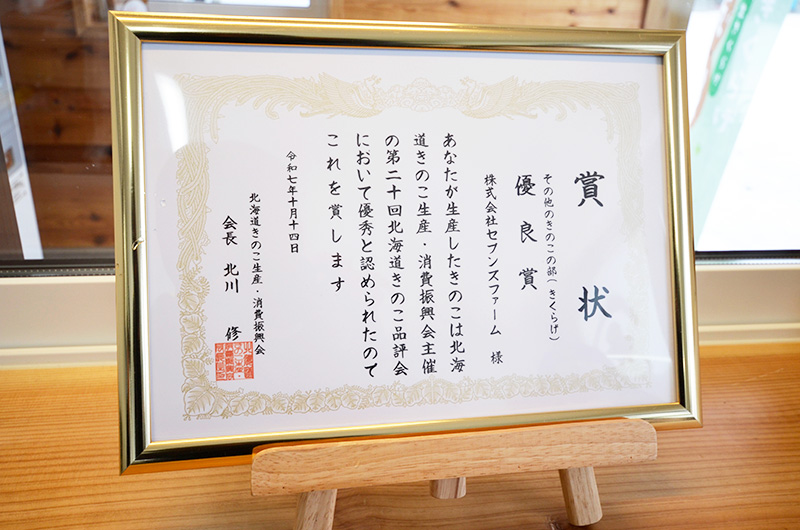 賞状
その他のきのこの部(きくらげ)
優良賞
株式会社セブンズファーム 様
あなたが生産したきのこは北海
道きのこ生産・消費振興会主催
の第二十回北海道きのこ品評会
において優秀と認められたので
これを賞します
令和七年十月十四日
北海道きのこ生産・消費振興会
会長 北川 修